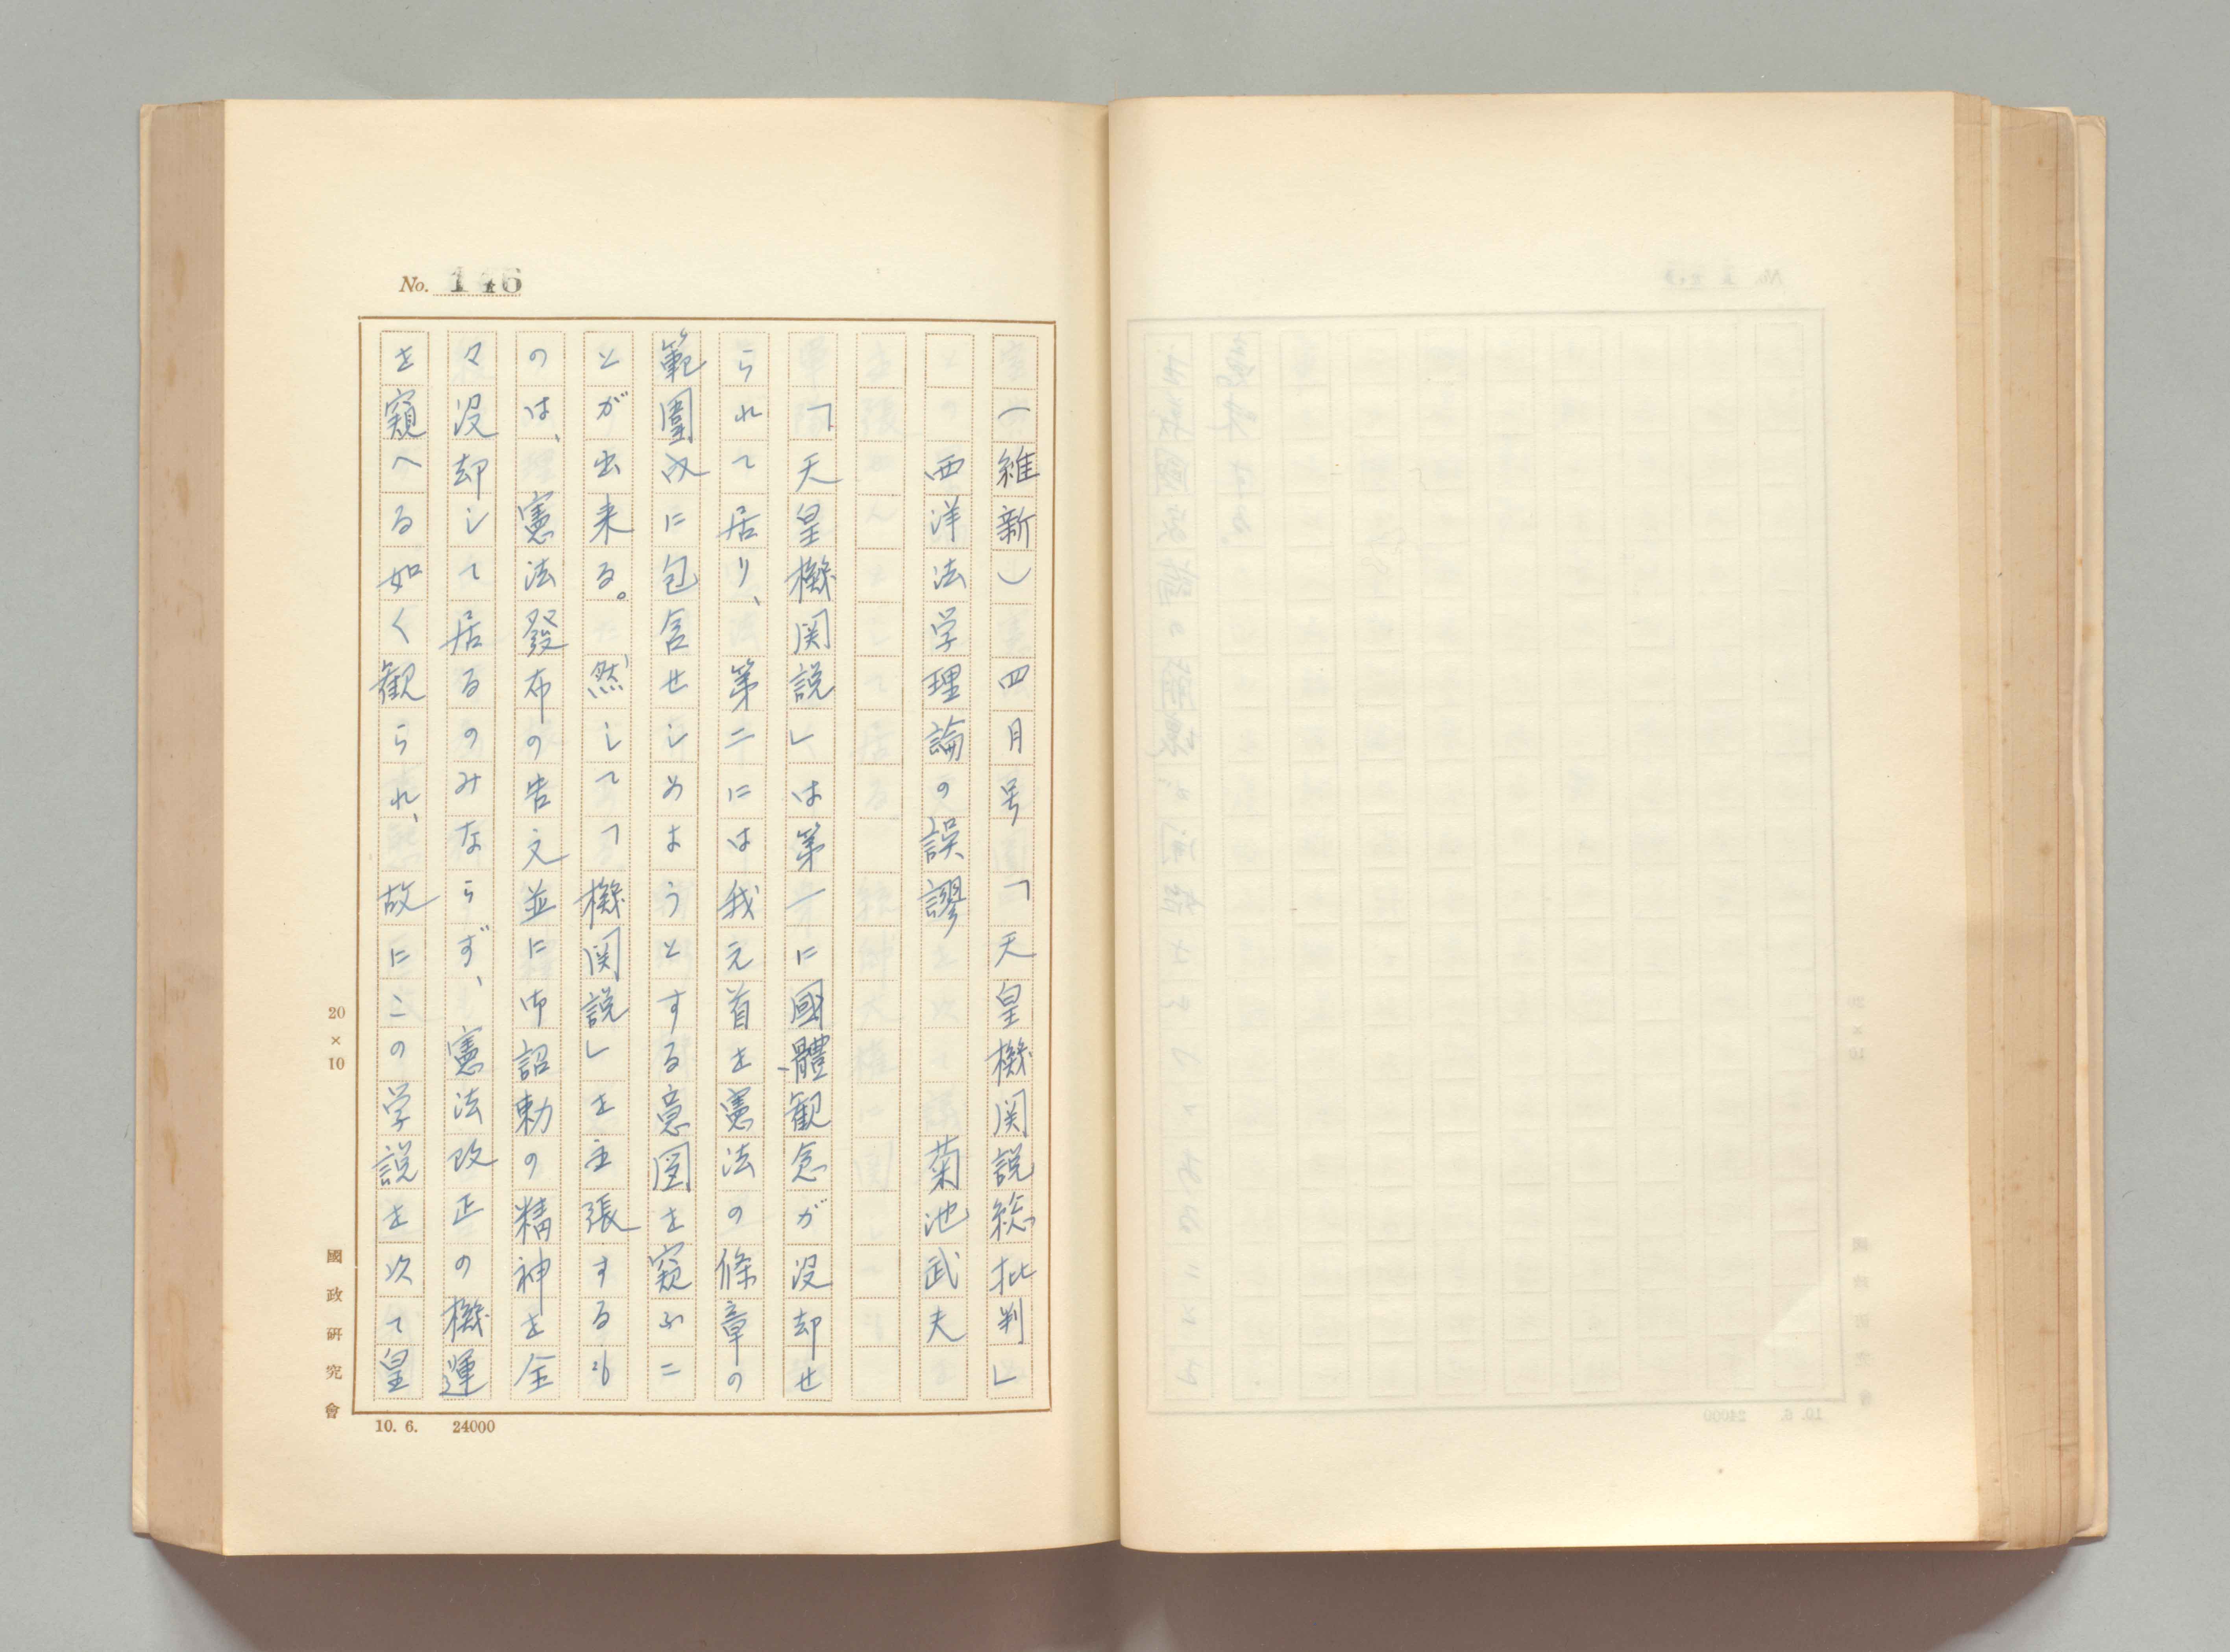 No. 146
（維新）四月号「天皇機関説総批判」
西洋法学理論の誤謬 菊池武夫
「天皇機関説」は第一に國體観念が没却せ
られて居り、第二には我元首を憲法の條章の
範圍内に包含せしめようとする意図を窺ふこ
とが出来る。然して「機関説」を主張するも
のは、憲法發布の告文並に御詔勅の精神を全
々没却して居るのみならず、憲法改正の機運
を窺へる如く観られ、故にこの学説を次て皇
20×10
國政研究會
10. 6. 24000